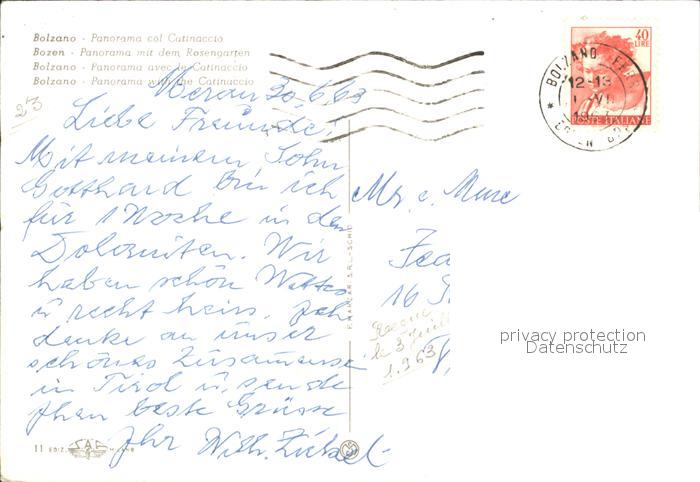 Bolzano - Panorama col Catinaccio
Bozen - Panorama mit dem Rosengarten
Bolzano - Panorama avec le Catinaccio
Bolzano - Panorama with the Catinaccio
23
Meran 30.6.63
Liebe Freunde!
Mit meinem Sohn
Gotthard bin ich
für 1 Woche in den
Dolomiten. Wir
haben schön Wetter
u recht heiss. Ich
denke an unser
schönes Zusammense
in Tirol u. sende
Ihnen beste Grüsse
Ihr Wilh.
Mr. e. Mme
16
le 3 Juill
1963
privacy protection
Datenschutz
40
LIRE
POSTE ITALIANE
BOLZANO FERR
12-13
11 EDIZ. S.A.F. MILANO